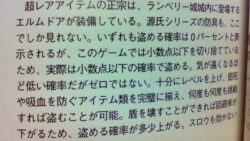 超レアアイテムの正宗は、ランベリー城城内に登場する
エルムドアが装備している。源氏シリーズの防具も、ここ
でしか見れない。いずれも盗める確率は０パーセントと表
示されるが、このゲームでは小数点以下を切り捨てている
ため、実際は小数点以下の確率で盗める。気が遠くなるほ
ど低い確率だがゼロではない。十分にレベルを上げ、即死
や吸血を防ぐアイテム類を完璧に揃え、何度も何度も挑戦
すれば盗むことが可能。盾を壊すことができれば回避率が
下がるため、盗める確率が多少上がる。スロウも効かない